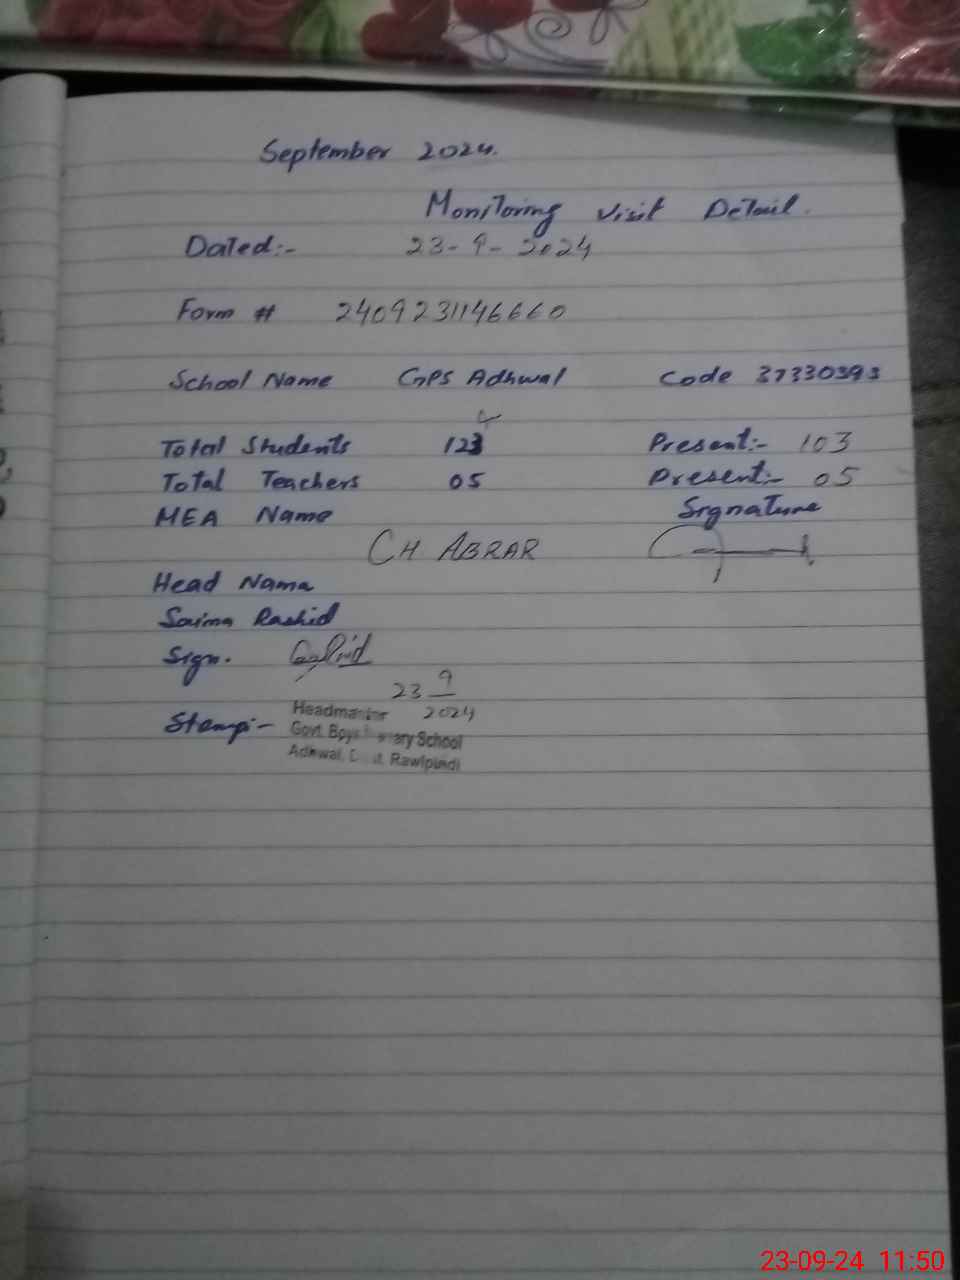 September 2024.
Monitoring visit Detail.
Dated:- 23-9-2024
Form # 2409231146660
School Name GPS Adhwal Code 37330393
4
Total Students 123 Present:- 103
Total Teachers 05 Present:- 05
MEA Name Signature
CH ABRAR
Head Name
Saima Rashid
Sign.
23 9
2024
Stamp:- Headmaster
Govt. Boys Primary School
Adhwal, Distt. Rawlpindi
23-09-24 11:50